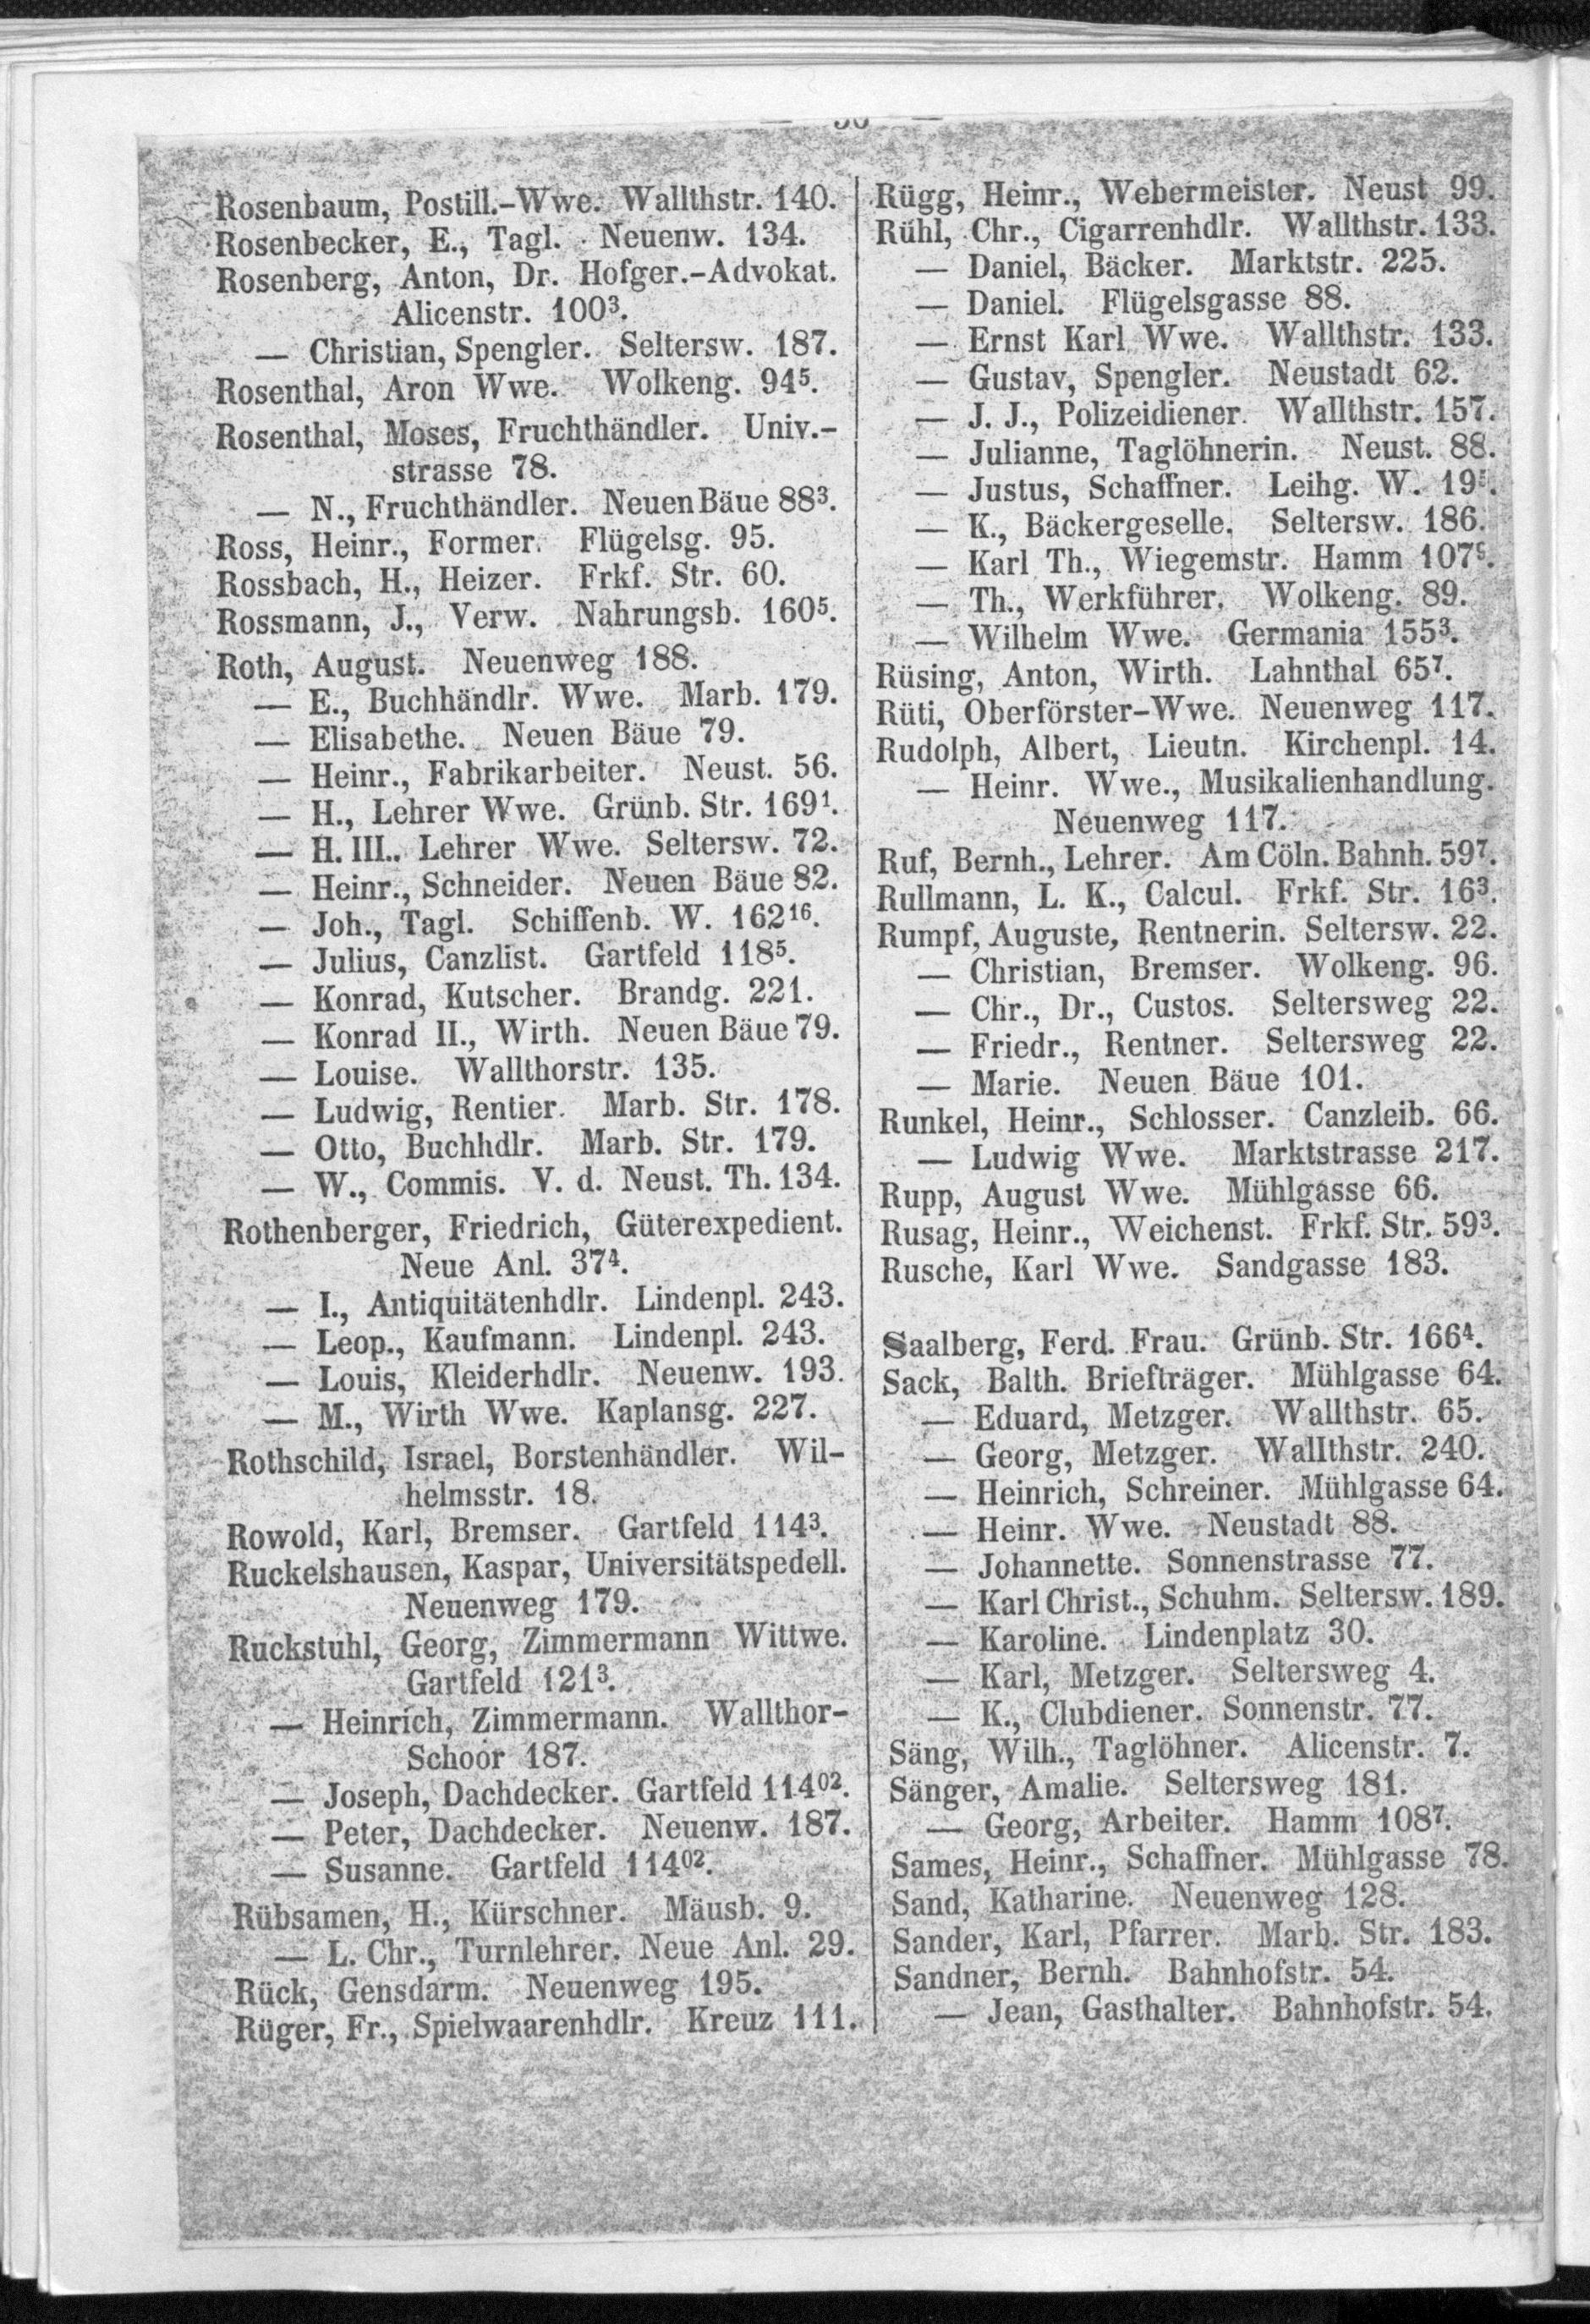 Rosenbaum, Postill.-Wwe. Wallthstr. 140.
Rosenbecker, E., Tagl. Neuenw. 134.
Rosenberg, Anton, Dr. Hofger.-Advokat.
Alicenstr. 100³.
— Christian, Spengler. Seltersw. 187.
Rosenthal, Aron Wwe. Wolkeng. 94⁵.
Rosenthal, Moses, Fruchthändler. Univ.-
strasse 78.
— N., Fruchthändler. Neuen Bäue 88³.
Ross, Heinr., Former. Flügelsg. 95.
Rossbach, H., Heizer. Frkf. Str. 60.
Rossmann, J., Verw. Nahrungsb. 160⁵.
Roth, August. Neuenweg 188.
— E., Buchhändlr. Wwe. Marb. 179.
— Elisabethe. Neuen Bäue 79.
— Heinr., Fabrikarbeiter. Neust. 56.
— H., Lehrer Wwe. Grünb. Str. 169¹.
— H. III.. Lehrer Wwe. Seltersw. 72.
— Heinr., Schneider. Neuen Bäue 82.
— Joh., Tagl. Schiffenb. W. 162¹⁶.
— Julius, Canzlist. Gartfeld 118⁵.
— Konrad, Kutscher. Brandg. 221.
— Konrad II., Wirth. Neuen Bäue 79.
— Louise. Wallthorstr. 135.
— Ludwig, Rentier. Marb. Str. 178.
— Otto, Buchhdlr. Marb. Str. 179.
— W., Commis. V. d. Neust. Th. 134.
Rothenberger, Friedrich, Güterexpedient.
Neue Anl. 37⁴.
— I., Antiquitätenhdlr. Lindenpl. 243.
— Leop., Kaufmann. Lindenpl. 243.
— Louis, Kleiderhdlr. Neuenw. 193.
— M., Wirth Wwe. Kaplansg. 227.
Rothschild, Israel, Borstenhändler. Wil-
helmsstr. 18.
Rowold, Karl, Bremser. Gartfeld 114³.
Ruckelshausen, Kaspar, Universitätspedell.
Neuenweg 179.
Ruckstuhl, Georg, Zimmermann Wittwe.
Gartfeld 121³.
— Heinrich, Zimmermann. Wallthor-
Schoor 187.
— Joseph, Dachdecker. Gartfeld 114⁰².
— Peter, Dachdecker. Neuenw. 187.
— Susanne. Gartfeld 114⁰².
Rübsamen, H., Kürschner. Mäusb. 9.
— L. Chr., Turnlehrer. Neue Anl. 29.
Rück, Gensdarm. Neuenweg 195.
Rüger, Fr., Spielwaarenhdlr. Kreuz 111.
Rügg, Heinr., Webermeister. Neust 99.
Rühl, Chr., Cigarrenhdlr. Wallthstr. 133.
— Daniel, Bäcker. Marktstr. 225.
— Daniel. Flügelsgasse 88.
— Ernst Karl Wwe. Wallthstr. 133.
— Gustav, Spengler. Neustadt 62.
— J. J., Polizeidiener. Wallthstr. 157.
— Julianne, Taglöhnerin. Neust. 88.
— Justus, Schaffner. Leihg. W. 19⁵.
— K., Bäckergeselle. Seltersw. 186.
— Karl Th., Wiegemstr. Hamm
— Th., Werkführer. Wolkeng. 89.
— Wilhelm Wwe. Germania 155³.
Rüsing, Anton, Wirth. Lahnthal 65⁷.
Rüti, Oberförster-Wwe. Neuenweg 117.
Rudolph, Albert, Lieutn. Kirchenpl. 14.
— Heinr. Wwe., Musikalienhandlung.
Neuenweg 117.
Ruf, Bernh., Lehrer. Am Cöln. Bahnh. 59⁷.
Rullmann, L. K., Calcul. Frkf. Str. 16³.
Rumpf, Auguste, Rentnerin. Seltersw. 22.
— Christian, Bremser. Wolkeng. 96.
— Chr., Dr., Custos. Seltersweg 22.
— Friedr., Rentner. Seltersweg 22.
— Marie. Neuen Bäue 101.
Runkel, Heinr., Schlosser. Canzleib. 66.
— Ludwig Wwe. Marktstrasse 217.
Rupp, August Wwe. Mühlgasse 66.
Rusag, Heinr., Weichenst. Frkf. Str. 59³.
Rusche, Karl Wwe. Sandgasse 183.
Saalberg, Ferd. Frau. Grünb. Str. 166⁴.
Sack, Balth. Briefträger. Mühlgasse 64.
— Eduard, Metzger. Wallthstr. 65.
— Georg, Metzger. Wallthstr. 240.
— Heinrich, Schreiner. Mühlgasse 64.
— Heinr. Wwe. Neustadt 88.
— Johannette. Sonnenstrasse 77.
— Karl Christ., Schuhm. Seltersw. 189.
— Karoline. Lindenplatz 30.
— Karl, Metzger. Seltersweg 4.
— K., Clubdiener. Sonnenstr. 77.
Säng, Wilh., Taglöhner. Alicenstr. 7.
Sänger, Amalie. Seltersweg 181.
— Georg, Arbeiter. Hamm 108⁷.
Sames, Heinr., Schaffner. Mühlgasse 78.
Sand, Katharine. Neuenweg 128.
Sander, Karl, Pfarrer. Marb. Str. 183.
Sandner, Bernh. Bahnhofstr. 54.
— Jean, Gasthalter. Bahnhofstr. 54.